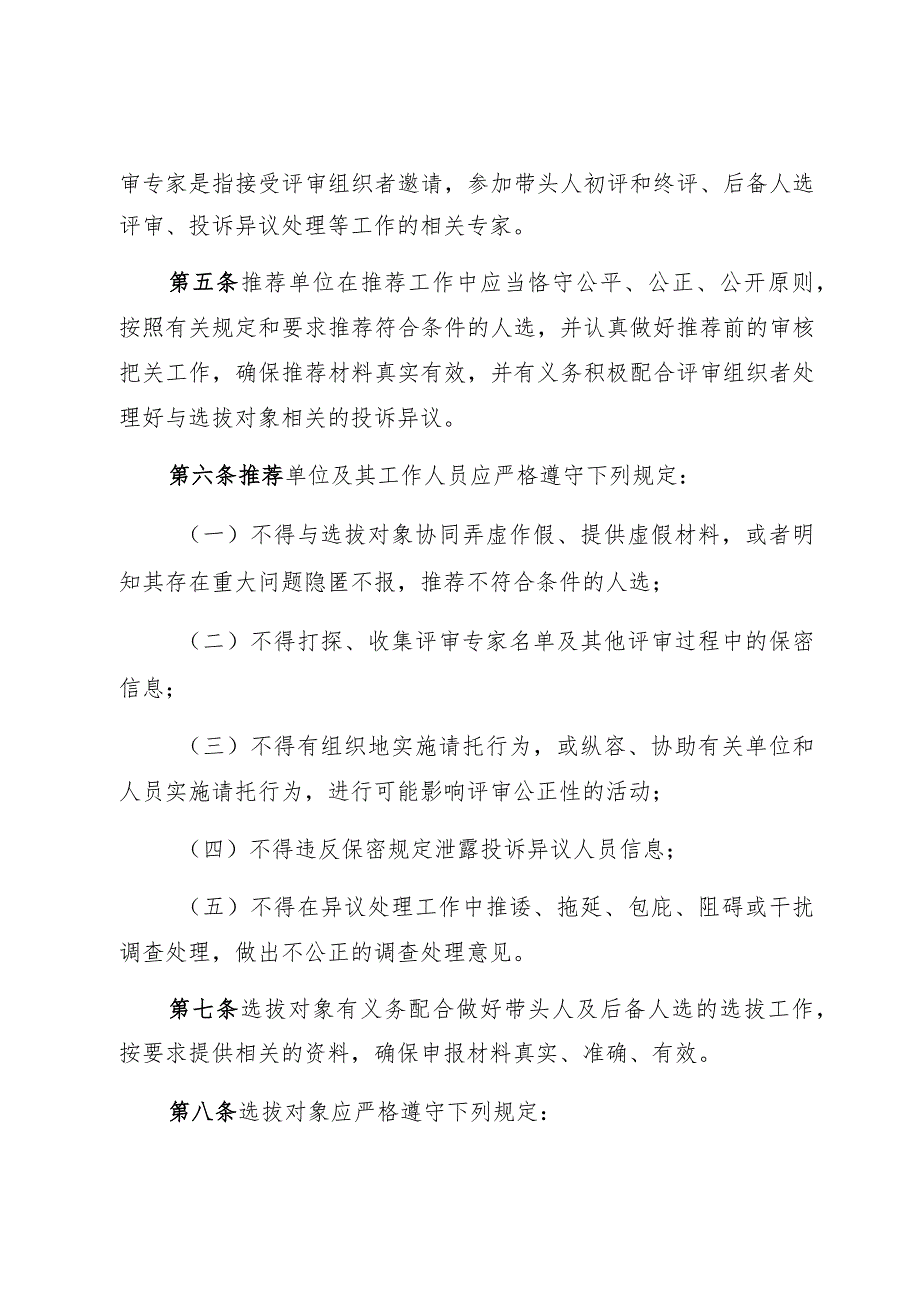 审专家是指接受评审组织者邀请，参加带头人初评和终评、后备人选
评审、投诉异议处理等工作的相关专家。
第五条推荐单位在推荐工作中应当恪守公平、公正、公开原则，
按照有关规定和要求推荐符合条件的人选，并认真做好推荐前的审核
把关工作，确保推荐材料真实有效，并有义务积极配合评审组织者处
理好与选拔对象相关的投诉异议。
第六条推荐单位及其工作人员应严格遵守下列规定：
（一）不得与选拔对象协同弄虚作假、提供虚假材料，或者明
知其存在重大问题隐匿不报，推荐不符合条件的人选；
（二）不得打探、收集评审专家名单及其他评审过程中的保密
信息；
（三）不得有组织地实施请托行为，或纵容、协助有关单位和
人员实施请托行为，进行可能影响评审公正性的活动；
（四）不得违反保密规定泄露投诉异议人员信息；
（五）不得在异议处理工作中推诿、拖延、包庇、阻碍或干扰
调查处理，做出不公正的调查处理意见。
第七条选拔对象有义务配合做好带头人及后备人选的选拔工作，
按要求提供相关的资料，确保申报材料真实、准确、有效。
第八条选拔对象应严格遵守下列规定：